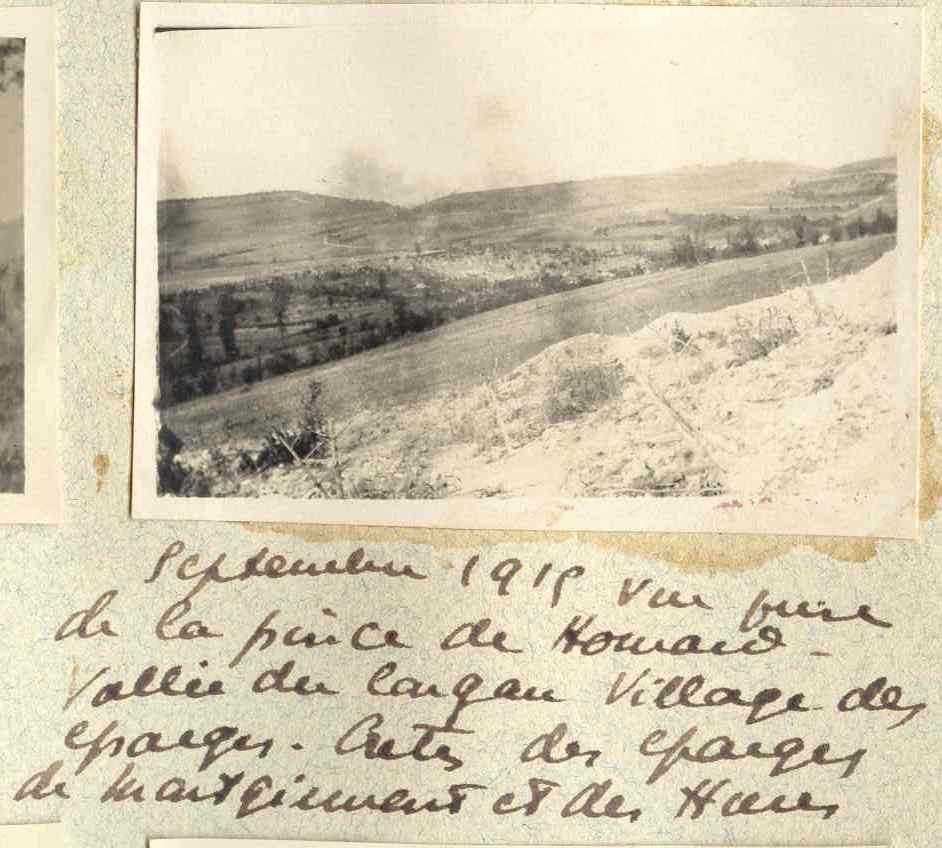 Septembre 1915 Vue prise
de la pince de Homard -
Vallée du longeau Village des
eparges. Cretes des eparges
de et des Hures